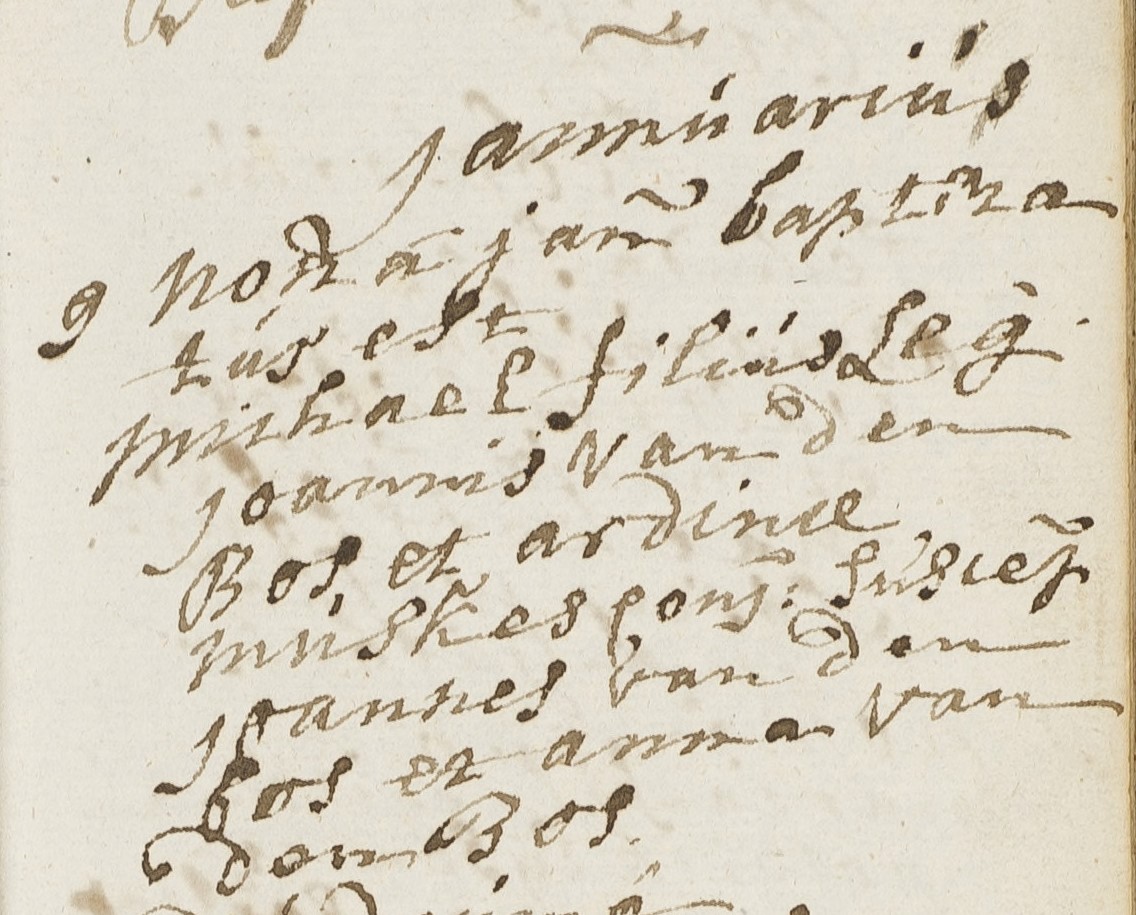 Jannuarius
9 nona jan baptiza
tus est
michael filius Leg.
Joannis van den
Bos, et ardinæ
muskes conj: suscep
Joannes van den
bos et anna van
den Bos.